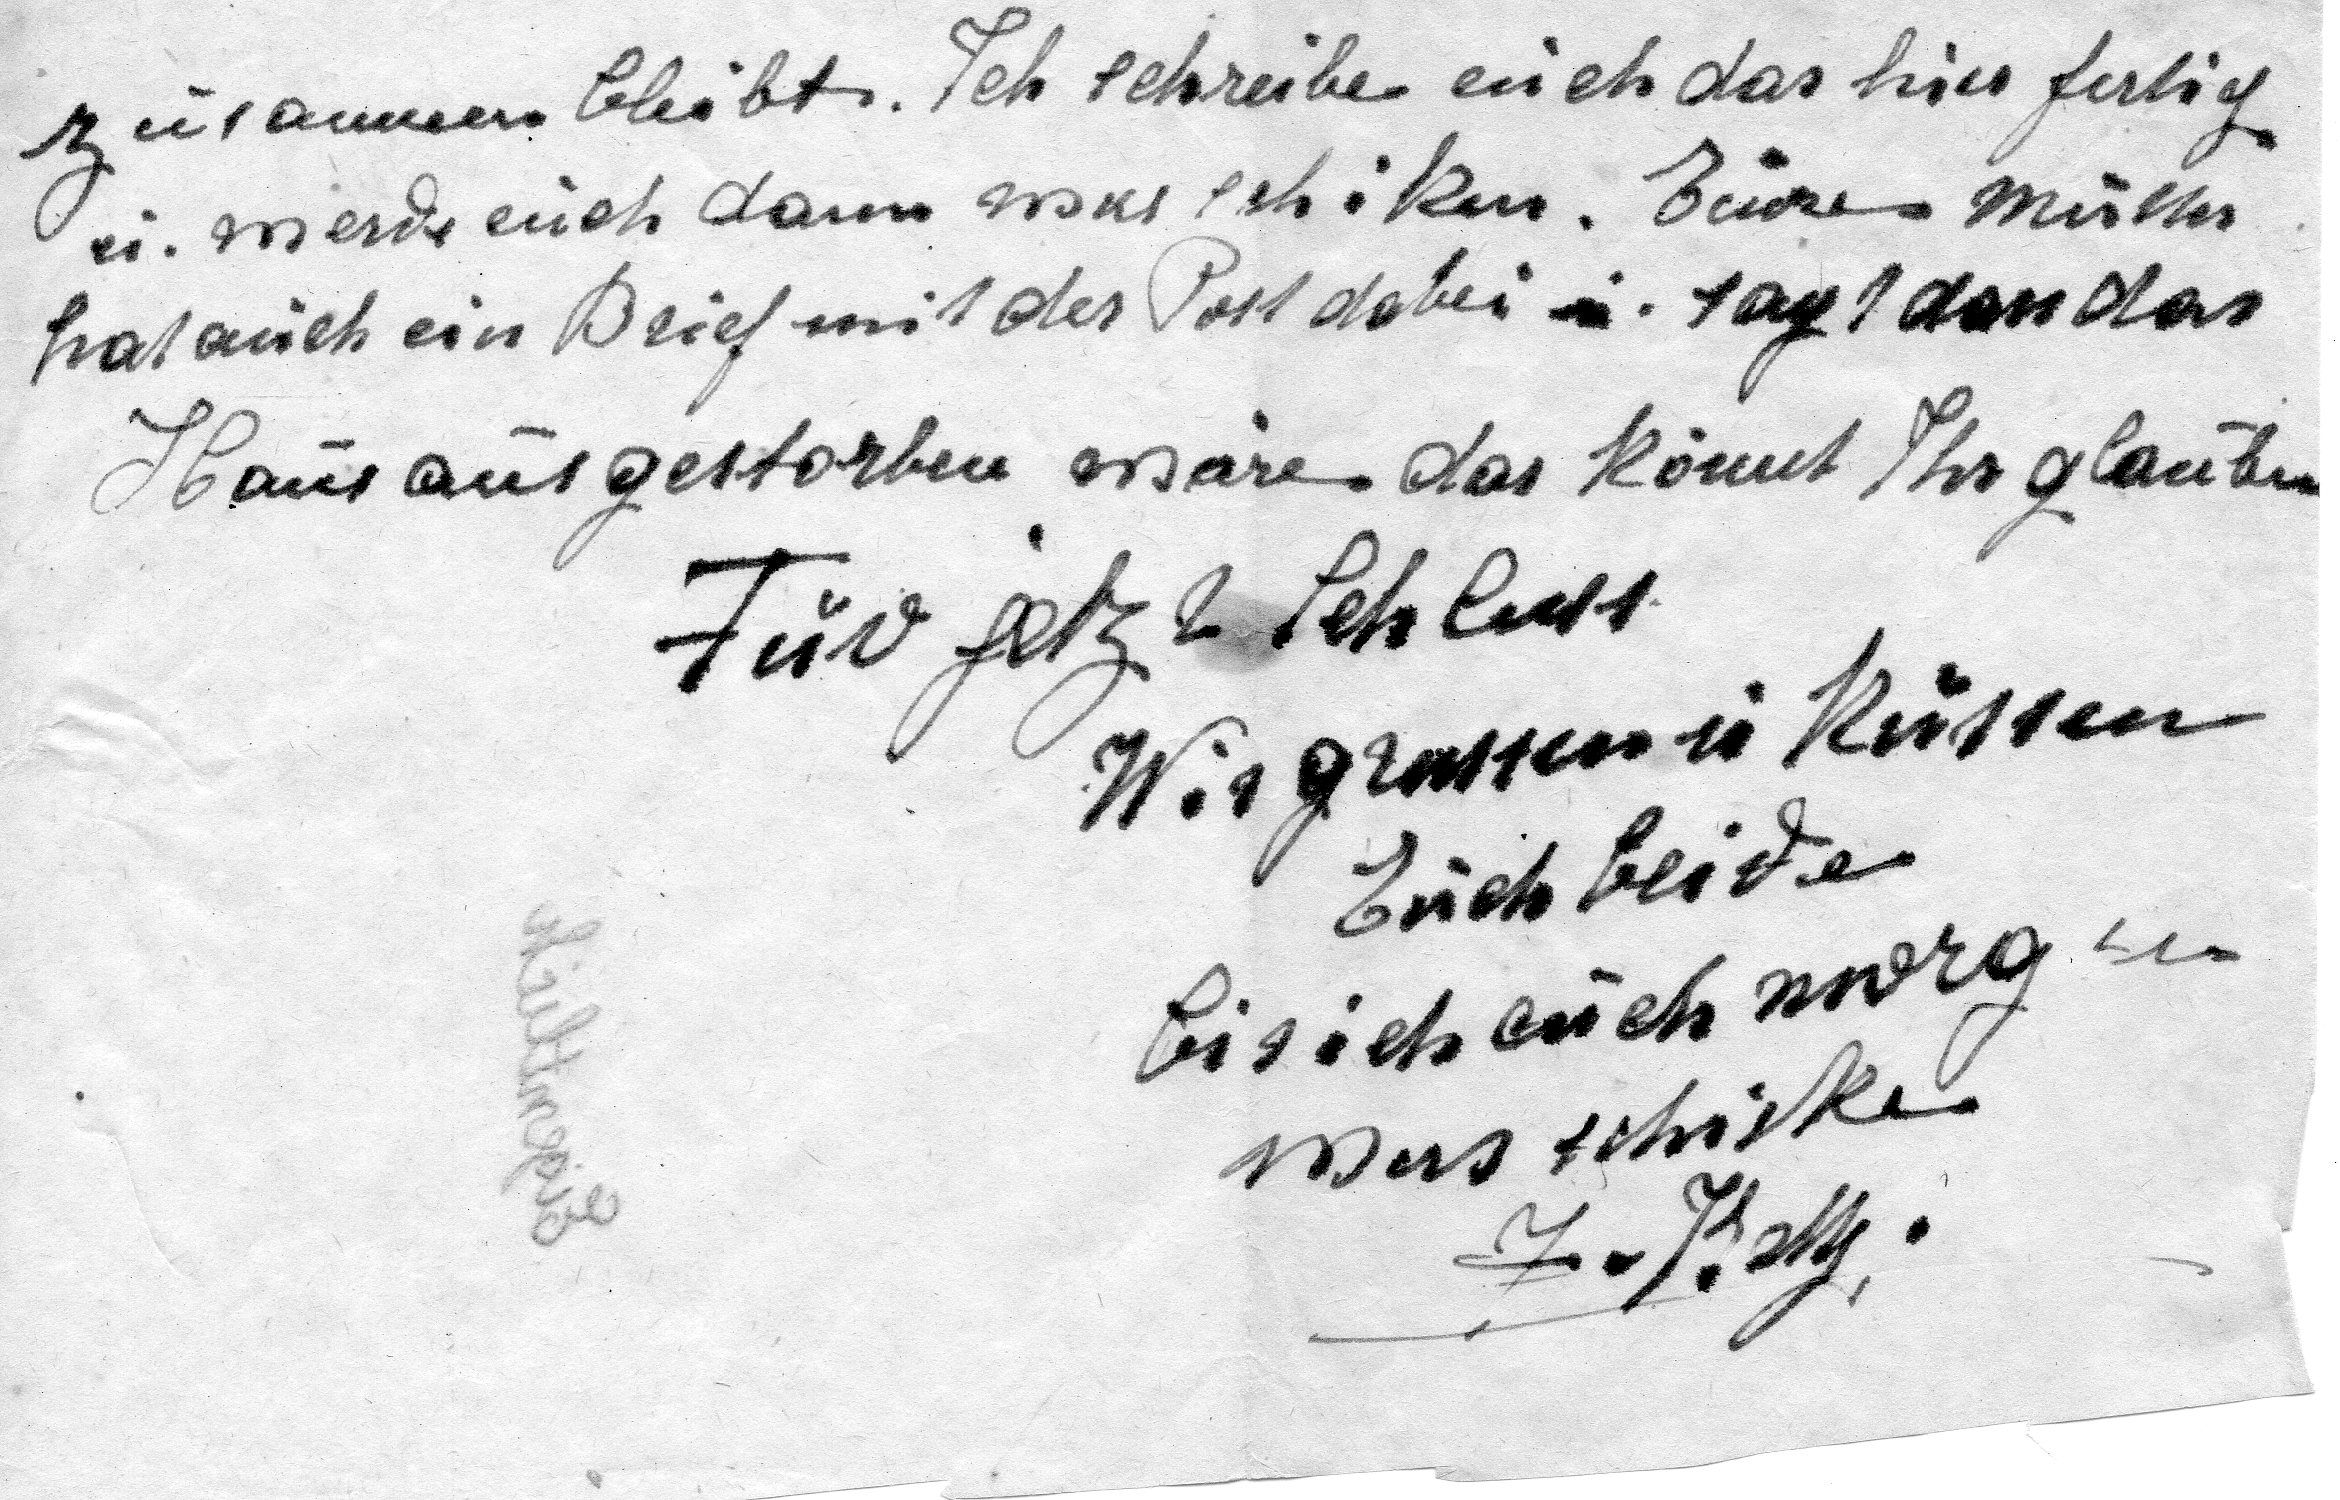 zusammen bleibt. Ich schreibe euch das hier fertig
u. werde euch dann was schiken. Eure Mutter
hat auch ein Brief mit der Post dabei u. sagt das das
Haus ausgestorben wäre das könnt Ihr glauben
Für jetzt Schluss
Wir grussen u Küssen
Euch beide
bis ich euch morgen
was schicke